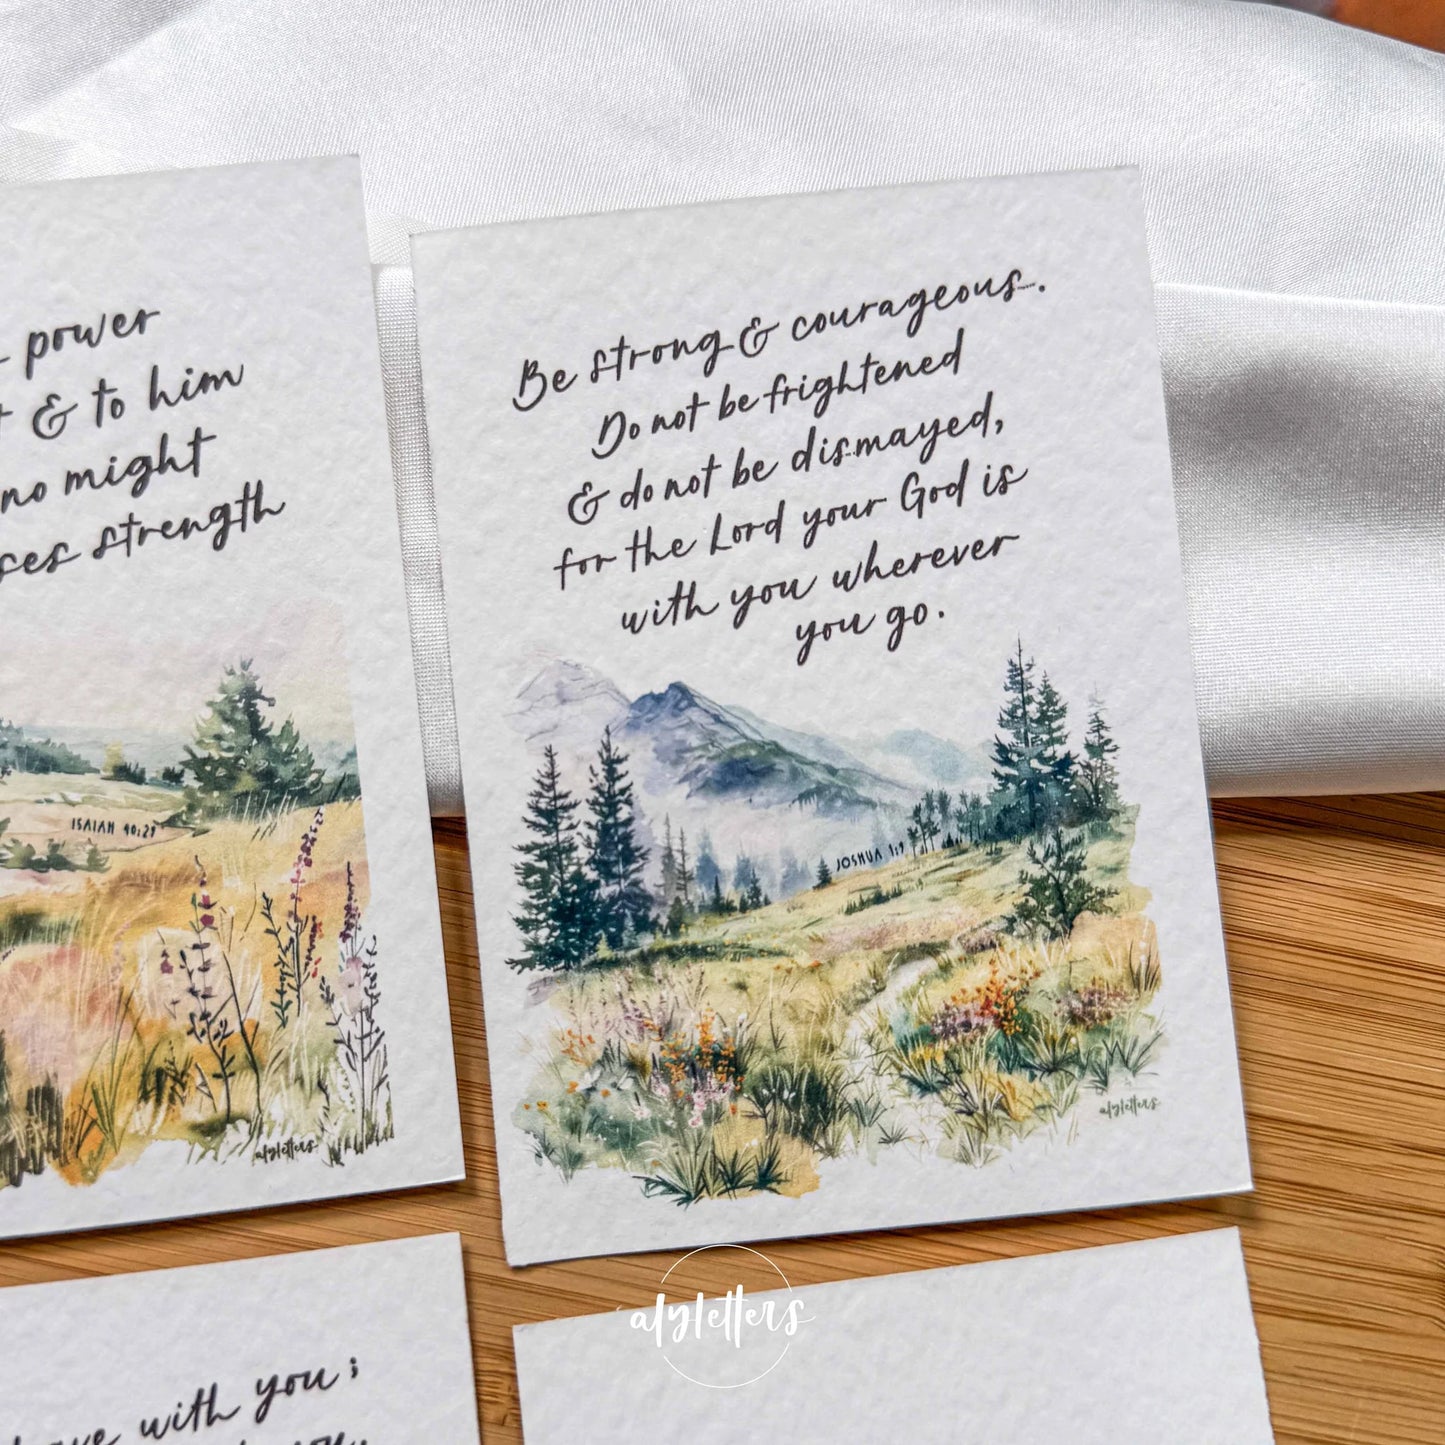 power
& to him
no might
strength
ISAIAH 40:29
alyletters
Be strong & courageous.
Do not be frightened
& do not be dismayed,
for the Lord your God is
with you wherever
you go.
JOSHUA 1:9
alyletters
with you;
alyletters